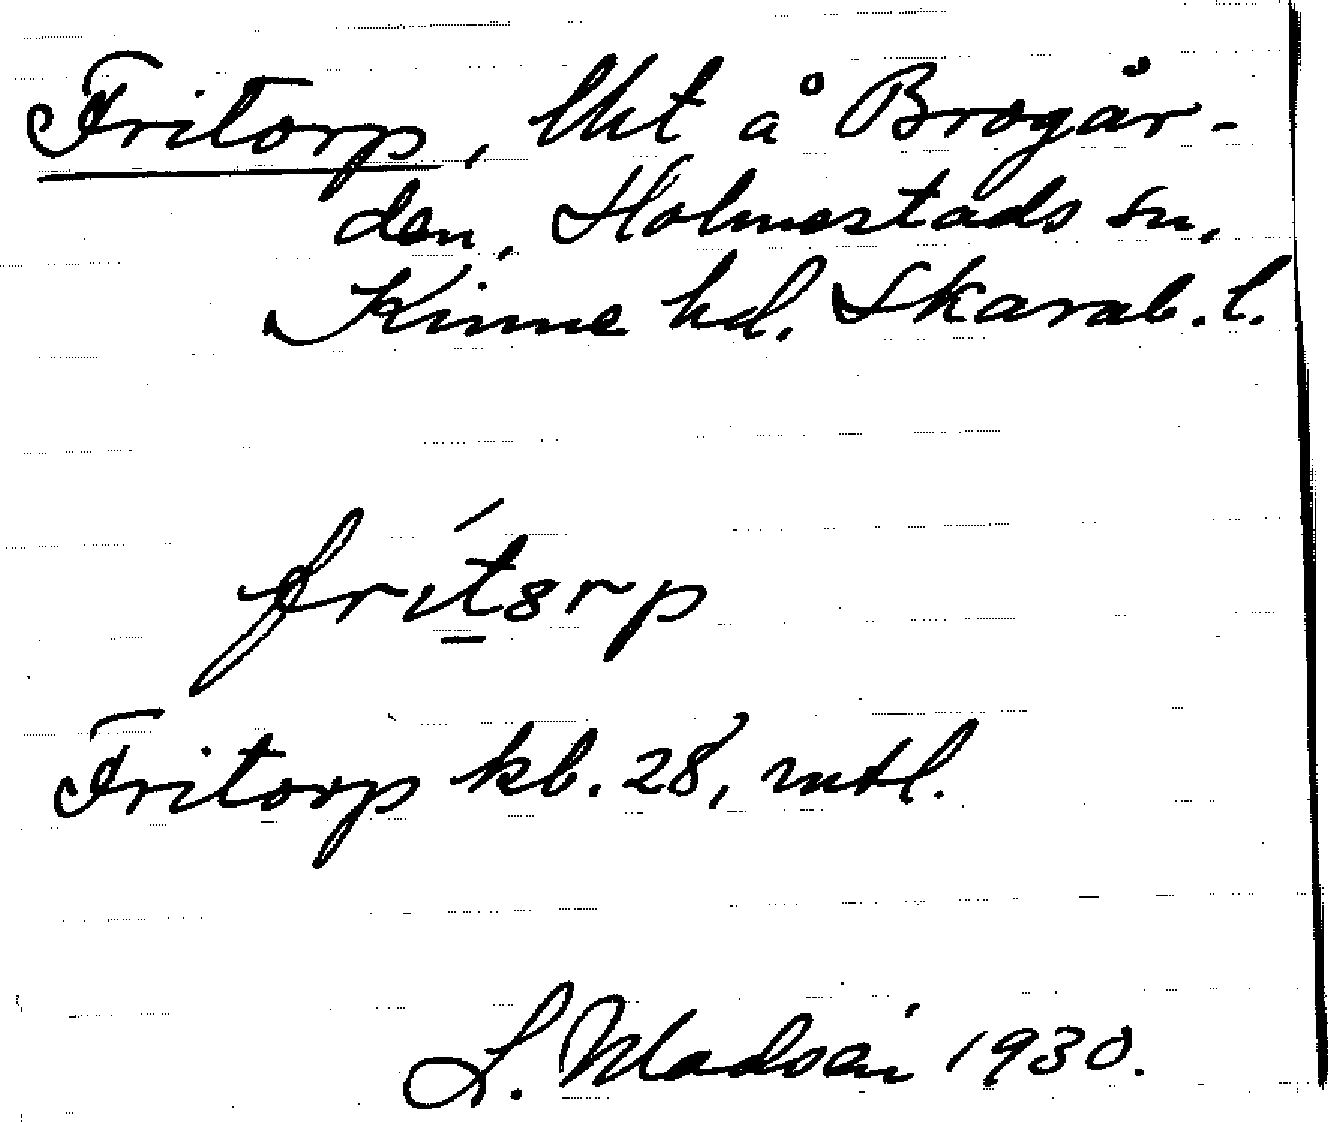 Fritorp, lht å Brogår-
den, Holmestads sn,
Kinne hd. Skarab. l.
frít8rp
Fritorp kb. 28, mtl.
L. Madsén 1930.